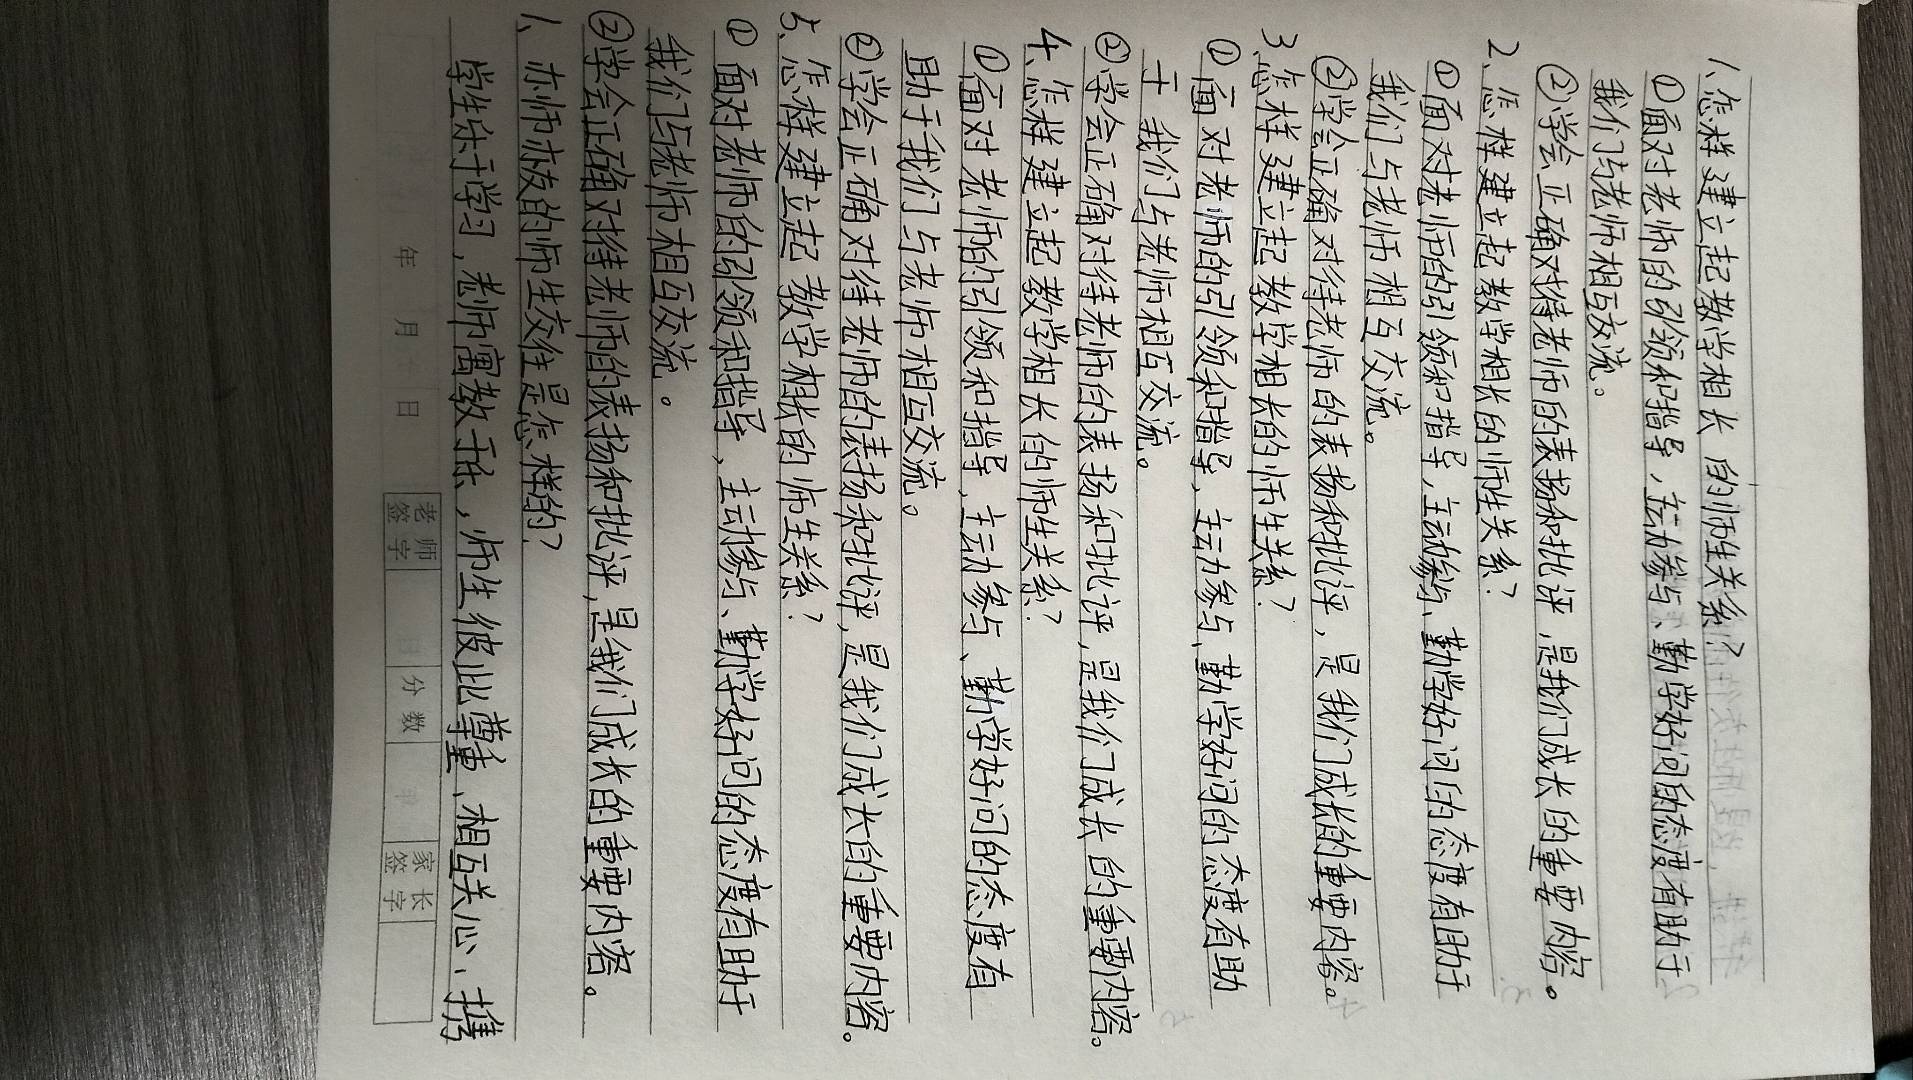 1、怎样建立起教学相长的师生关系?
①面对老师的引领和指导，主动参与、勤学好问的态度有助于
我们与老师相互交流。
②学会正确对待老师的表扬和批评，是我们成长的重要内容。
2、怎样建立起教学相长的师生关系?
①面对老师的引领和指导，主动参与、勤学好问的态度有助于
我们与老师相互交流。
②学会正确对待老师的表扬和批评，是我们成长的重要内容。
3、怎样建立起教学相长的师生关系?
①面对老师的引领和指导，主动参与、勤学好问的态度有助
于我们与老师相互交流。
②学会正确对待老师的表扬和批评，是我们成长的重要内容。
4、怎样建立起教学相长的师生关系?
①面对老师的引领和指导，主动参与、勤学好问的态度有
助于我们与老师相互交流。
②学会正确对待老师的表扬和批评，是我们成长的重要内容。
5、怎样建立起教学相长的师生关系?
①面对老师的引领和指导，主动参与、勤学好问的态度有助于
我们与老师相互交流。
②学会正确对待老师的表扬和批评，是我们成长的重要内容。
1、亦师亦友的师生交往是怎样的?
学生乐于学习，老师寓教于乐，师生彼此尊重、相互关心、携
年 月 日 老师签字 分数 家长签字